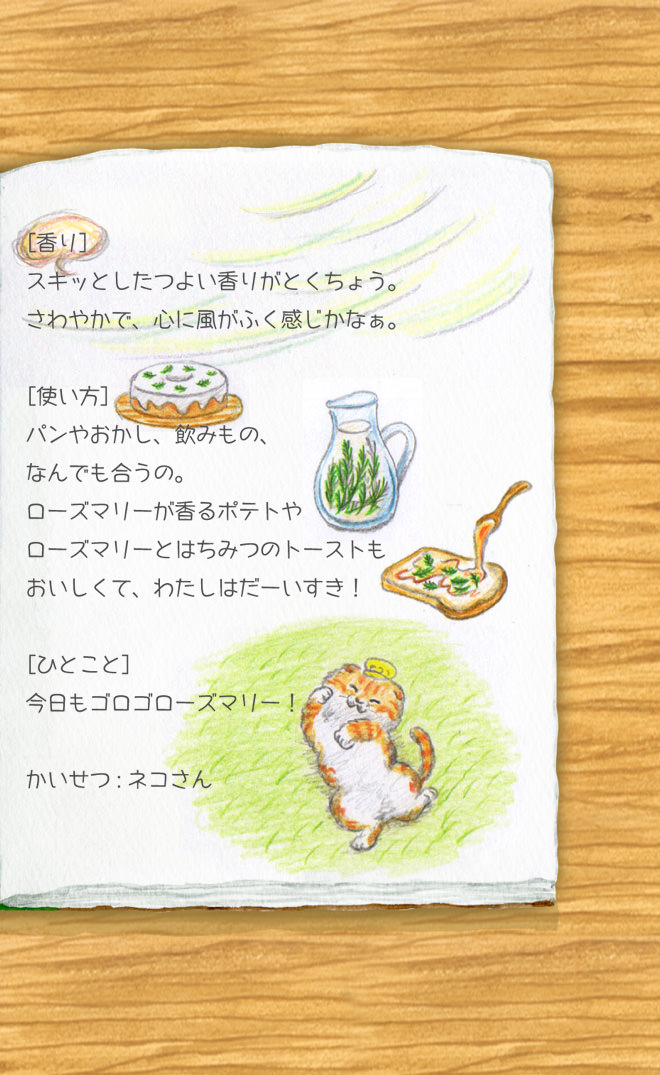 [香り]
スキッとしたつよい香りがとくちょう。
さわやかで、心に風がふく感じかなぁ。
[使い方]
パンやおかし、飲みもの、
なんでも合うの。
ローズマリーが香るポテトや
ローズマリーとはちみつのトーストも
おいしくて、わたしはだーいすき！
[ひとこと]
今日もゴロゴローズマリー！
かいせつ：ネコさん